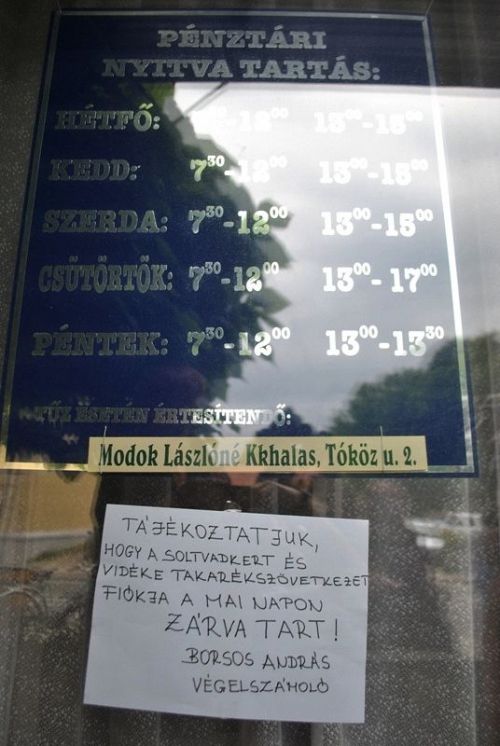 PÉNZTÁRI
NYITVA TARTÁS:
HÉTFŐ: 12⁰⁰ 13⁰⁰-15⁰⁰
KEDD: 7³⁰-12⁰⁰ 13⁰⁰-15⁰⁰
SZERDA: 7³⁰-12⁰⁰ 13⁰⁰-15⁰⁰
CSÜTÖRTÖK: 7³⁰-12⁰⁰ 13⁰⁰-17⁰⁰
PÉNTEK: 7³⁰-12⁰⁰ 13⁰⁰-13³⁰
TŰZ ESETÉN ÉRTESÍTENDŐ:
Modok Lászlóné Kkhalas, Tóköz u. 2.
TÁJÉKOZTATJUK,
HOGY A SOLTVADKERT ÉS
VIDÉKE TAKARÉKSZÖVETKEZET
FIÓKJA A MAI NAPON
ZÁRVA TART!
BORSOS ANDRÁS
VÉGELSZÁMOLÓ